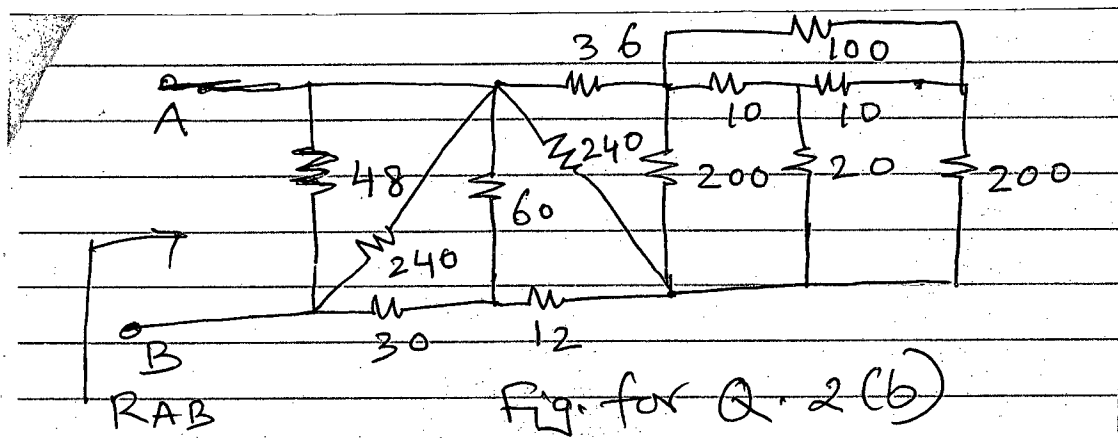 36
100
A
10 10
48
240
200
20
200
60
240
B
30
12
RAB
Fig. for Q. 2 (b)